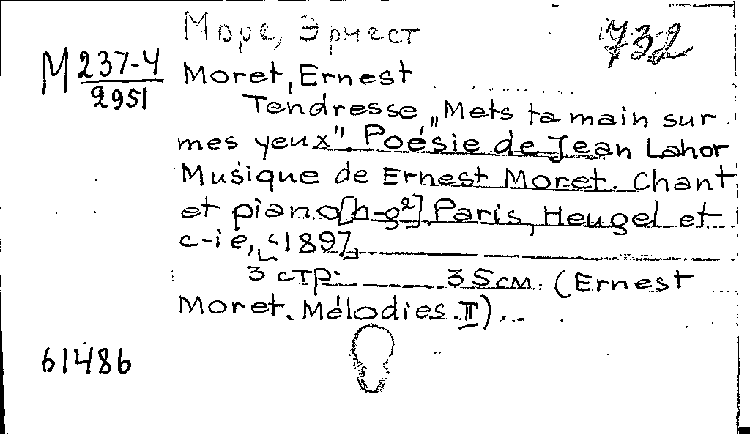 Море, Эрнест
732
М 237-4
2951
Moret, Ernest
Tendresse „Mets ta main sur
mes yeux". Poésie de Jean Lahor
Musique de Ernest Moret. Chant
et piano [h-g²]. Paris, Heugel et
c-ie, [1897]
3 стр. 35см. (Ernest
Moret. Mélodies. II)...
61486